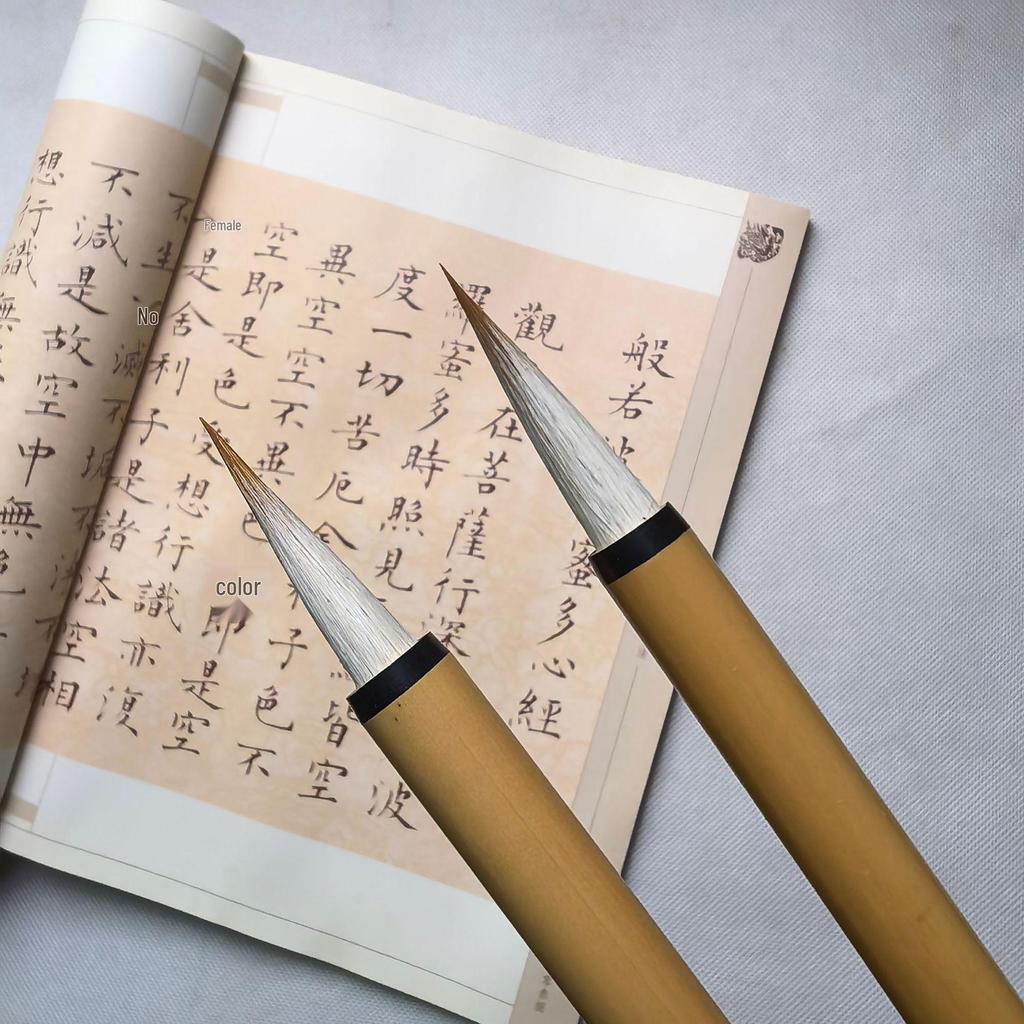 般若波蜜多心經
觀在菩薩行深波
羅蜜多時照見皆空
度一切苦厄舍子色不
異空空不異色
color
即是空
空即是色受想行識亦復
Female
是舍利子是諸法空相
不生
No
滅不垢不淨不
不減是故空中無色
想行識無